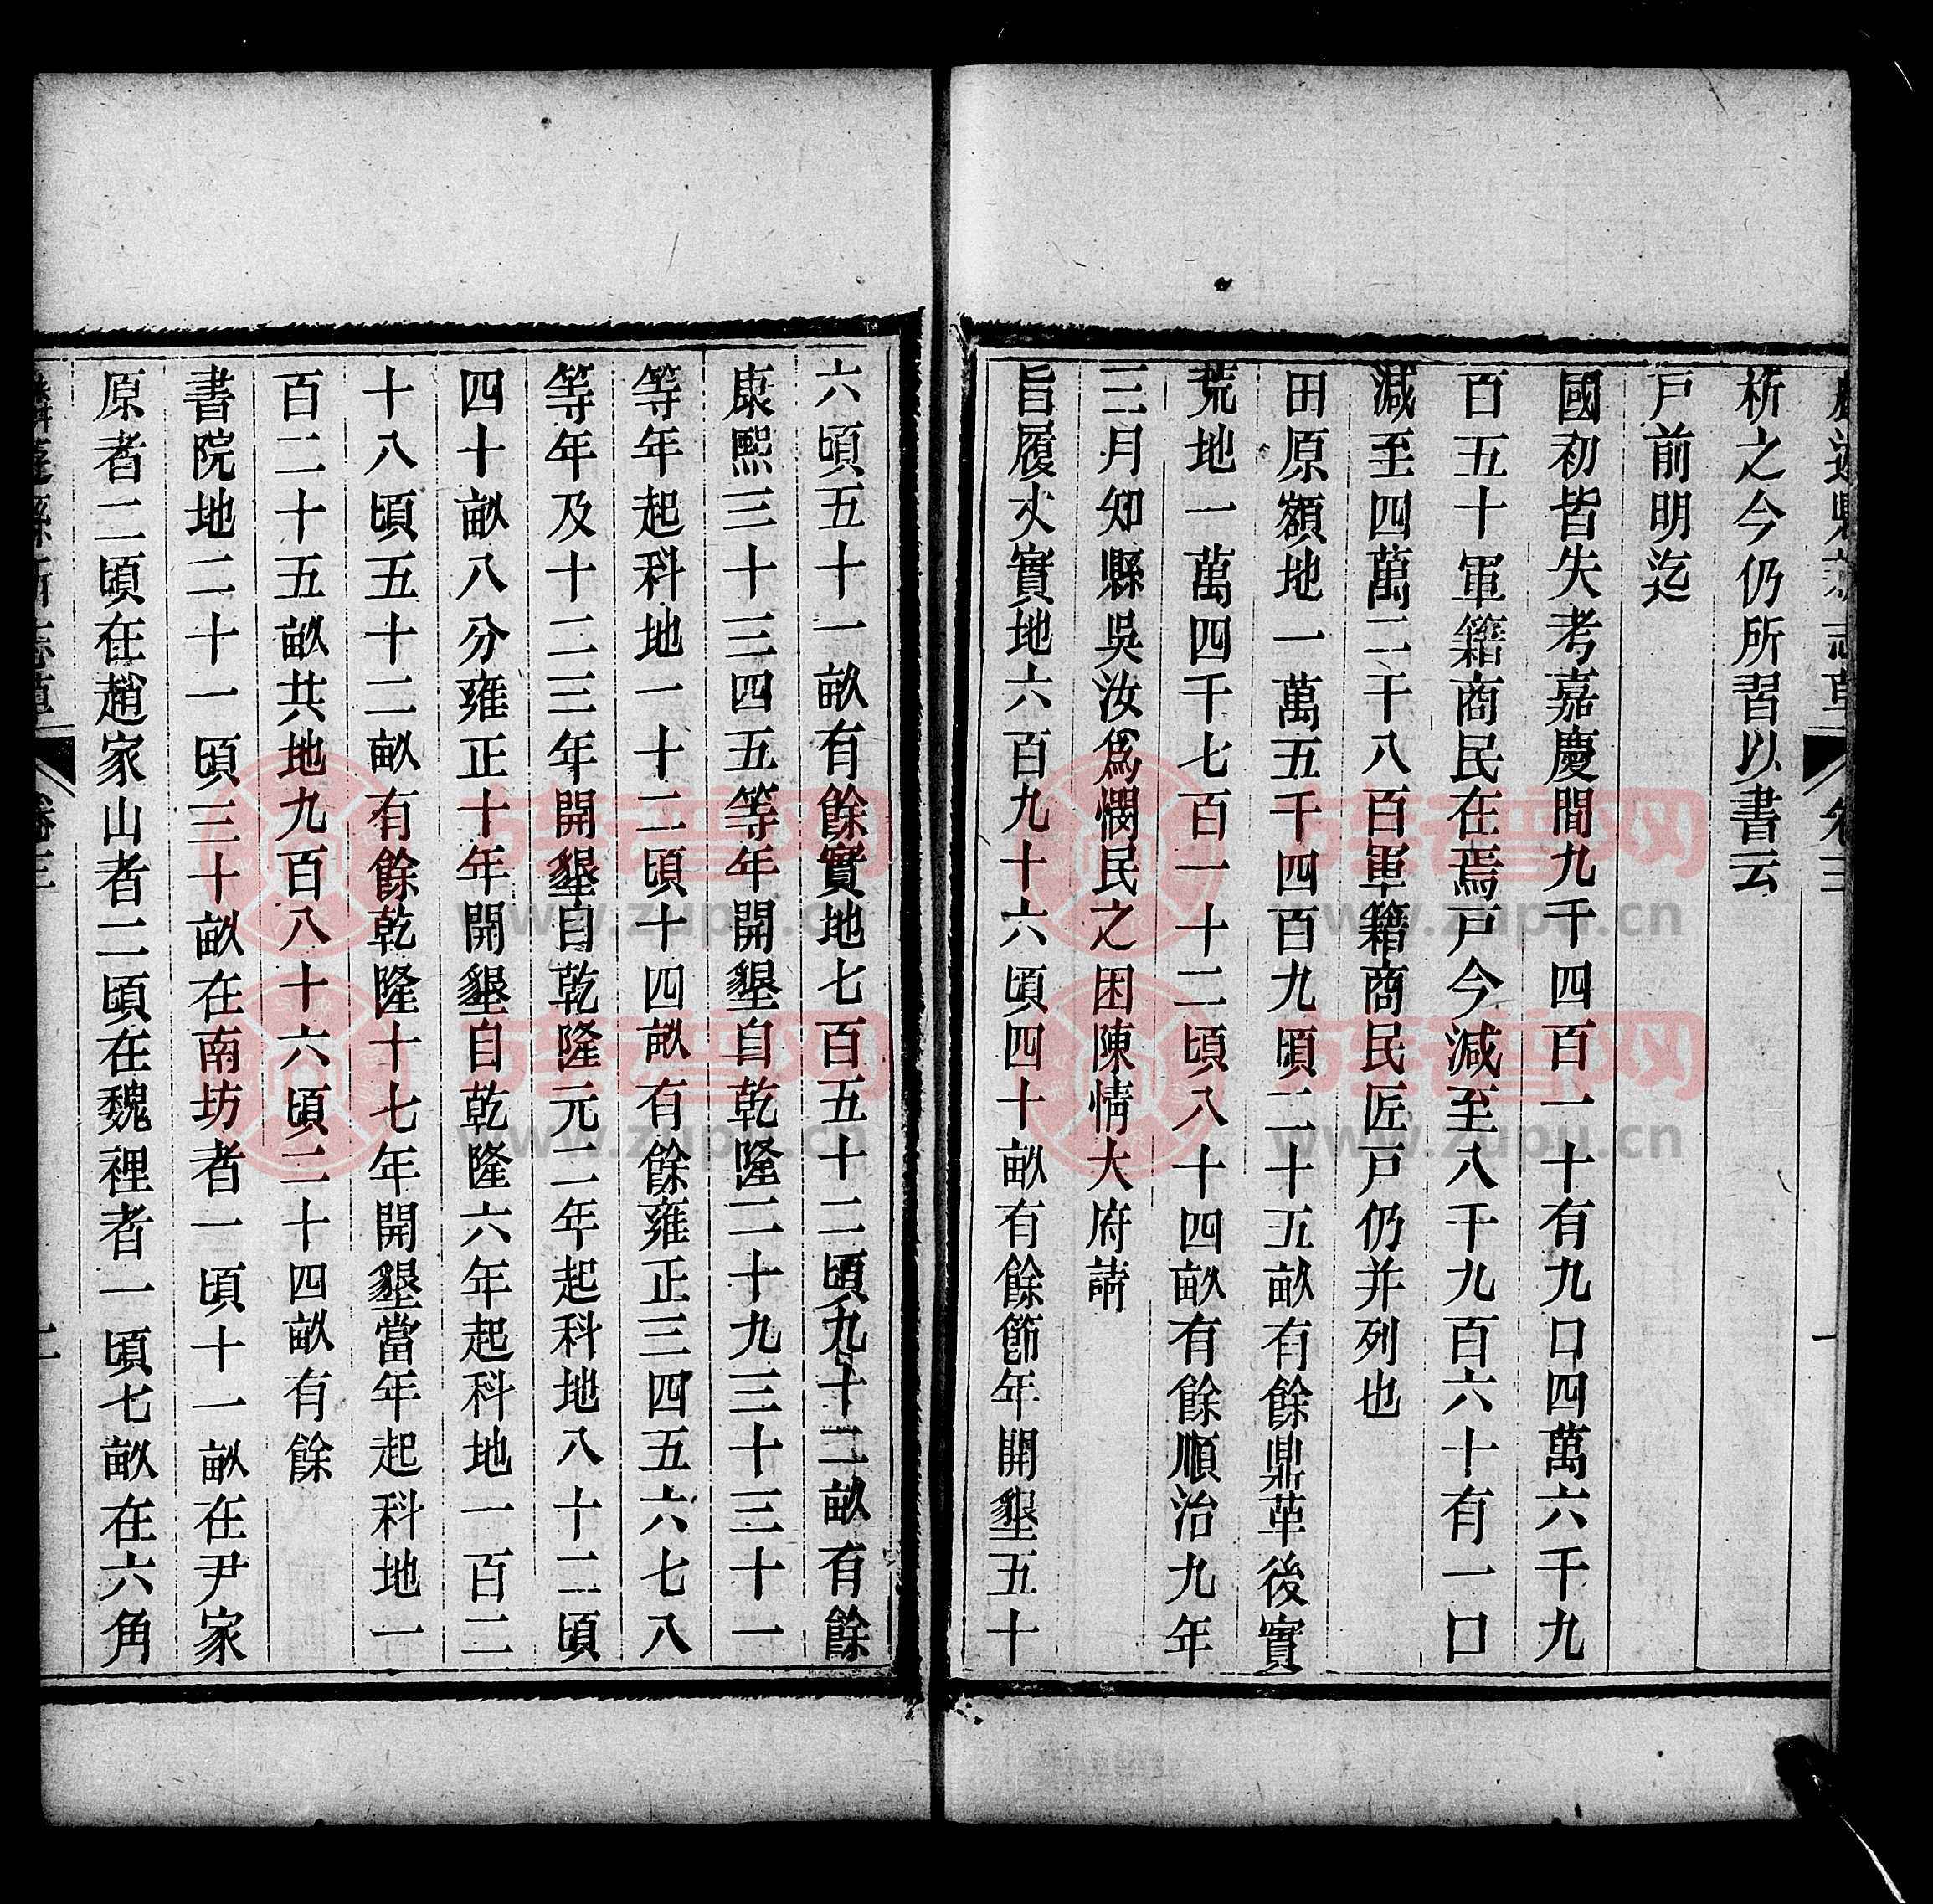 析之今仍所習以書云
戸前明迄
國初皆失考嘉慶間九千四百一十有九口四萬六千九
百五十軍籍商民在焉戸今減至八千九百六十有一口
減至四萬二千八百軍籍商民匠戸仍并列也
田原額地一萬五千四百九頃二十五畝有餘鼎革後實
荒地一萬四千七百一十二頃八十四畝有餘順治九年
三月知縣吳汝爲憫民之困陳情大府請
旨履丈實地六百九十六頃四十畝有餘節年開墾五十
六頃五十一畝有餘實地七百五十二頃九十二畝有餘
康熙三十三四五等年開墾自乾隆二十九三十三十一
等年起科地一十二頃十四畝有餘雍正三四五六七八
等年及十二三年開墾自乾隆元二年起科地八十二頃
四十畝八分雍正十年開墾自乾隆六年起科地一百二
十八頃五十二畝有餘乾隆十七年開墾當年起科地一
百二十五畝共地九百八十六頃二十四畝有餘
書院地二十一頃三十畝在南坊者一頃十一畝在尹家
原者二頃在趙家山者二頃在魏裡者一頃七畝在六角
麟遊縣新志草 卷三
族譜网
www.zupu.cn
族譜网
www.zupu.cn
族譜网
www.zupu.cn
族譜网
www.zupu.cn